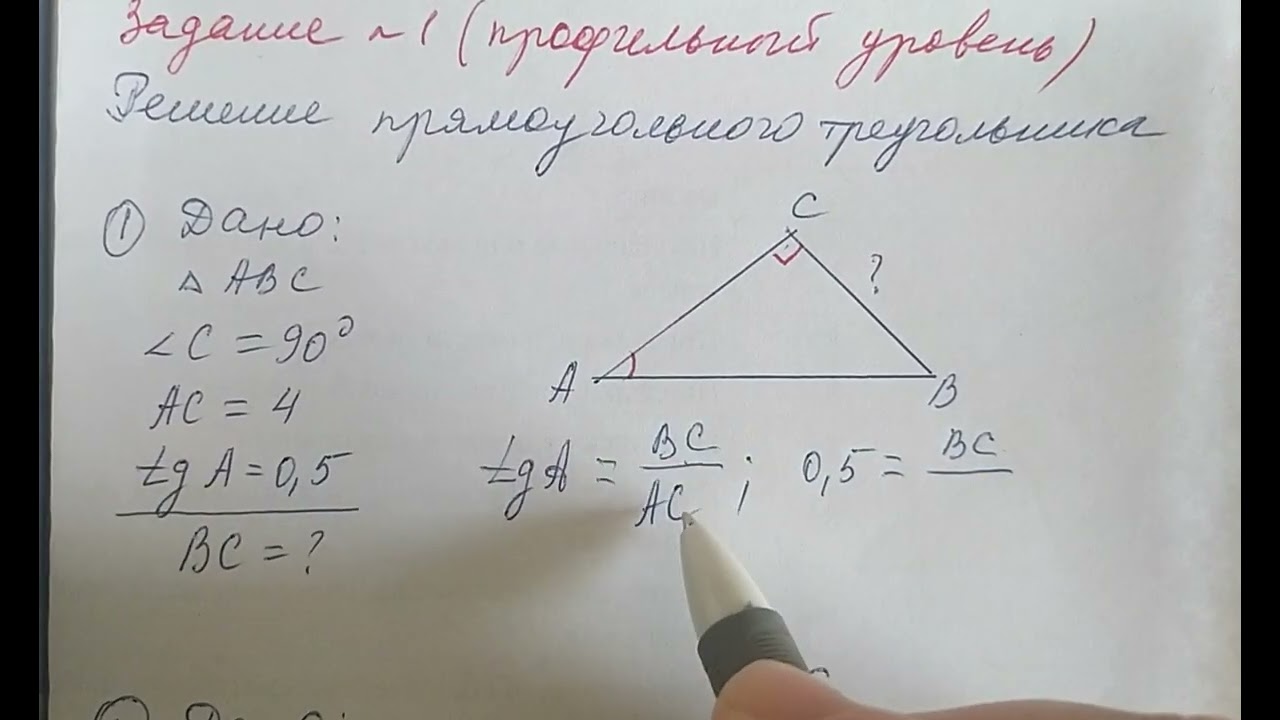 Задание №1 (профильный уровень)
Решение прямоугольного треугольника
① Дано:
△ ABC
∠C = 90°
AC = 4
tg A = 0,5
BC = ?
C
?
A
B
tg A = BC/AC ; 0,5 = BC/